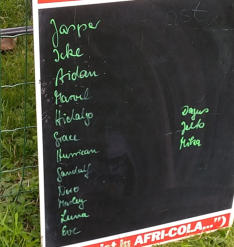 Jasper
Icke
Aidan
Marvel
Hidalgo
Grace
Hurrican
Gandalf
Nero
Marley
Luna
Eve
Dagus
Jelko
Mika
ist in AFRI-COLA...")